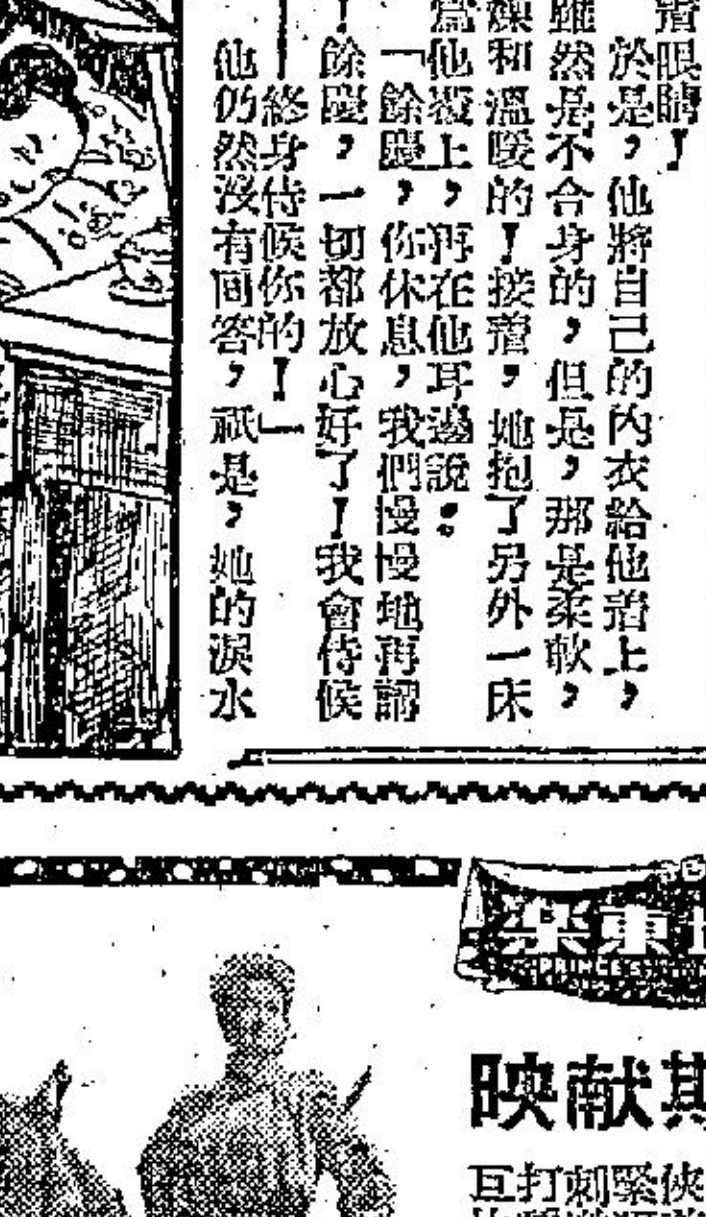 着眼睛！
於是，他將自己的內衣給他着上，
雖然是不合身的，但是，那是柔軟，
燥和溫暖的！接着，她抱了另外一床
為他覆上，再在他耳邊說：
「餘慶，你休息，我們慢慢地再談
！餘慶，一切都放心好了！我會侍候
──終身侍候你的！」
他仍然沒有回答，祇是，她的淚水
樂東
PRINCE'S
映献其
巨打刺緊俠